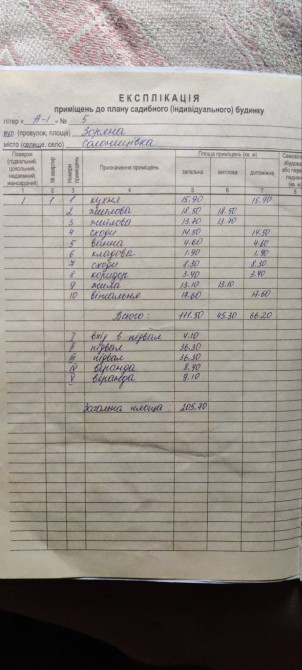 ЕКСПЛІКАЦІЯ
приміщень до плану садибного (індивідуального) будинку
літер « А-І » № 5
вул. (провулок, площа) Зоряна
місто (селище, село) Солошинівка
Поверхи (підвальний, цокольний, надземний, мансардний) № квартир Номери приміщень Призначення приміщень Площа приміщень (кв. м) загальна житлова допоміжна
1 2 3 4 5 6 7 8
1 1 1 кухня 15.90 15.90
2 житлова 18.50 18.50
3 житлова 13.70 13.70
4 сходи 14.50 14.50
5 ванна 4.60 4.60
6 кладова 1.90 1.90
7 сходи 8.30 8.30
8 коридор 3.40 3.40
9 житла 13.10 13.10
10 вітальня 17.60 17.60
Всього: 111.50 45.30 66.20
I вхід в підвал 4.10
II підвал 36.30
III підвал 36.30
IV веранда 8.40
V веранда 9.10
Загальна площа: 205.70